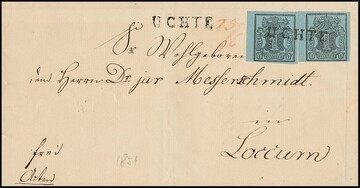 UCHTE 13/6
UCHTE
Sr Wohlgeboren
dem Herrn Dr jur Messerschmidt.
in
frei
Loccum
Acten
1851